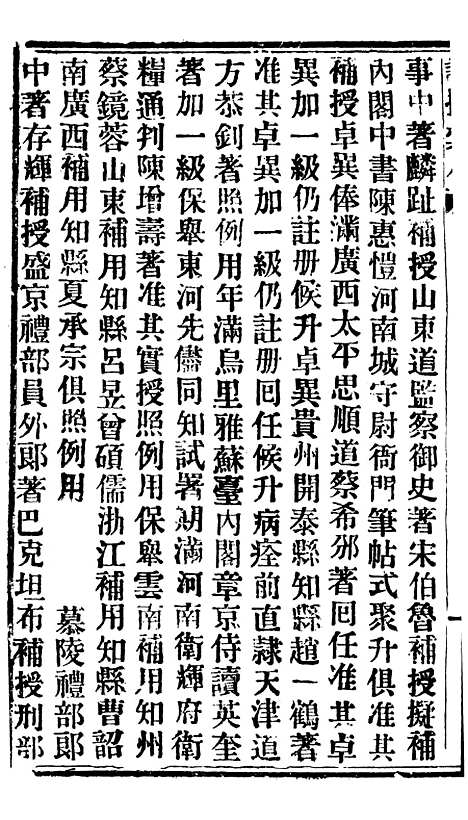 事中著麟趾補授山東道監察御史著宋伯魯補授擬補
內閣中書陳惠愷河南城守尉衙門筆帖式聚升俱准其
補授卓異俸滿廣西太平思順道蔡希邠著回任准其卓
異加一級仍註册候升卓異貴州開泰縣知縣趙一鶴著
准其卓異加一級仍註册回任候升病痊前直隸天津道
方恭釗著照例用年滿烏里雅蘇臺內閣章京侍讀英奎
著加一級保舉東河先儘同知試署期滿河南衛輝府衛
糧通判陳增壽著准其實授照例用保舉雲南補用知州
蔡鏡蓉山東補用知縣呂昱曾碩儒浙江補用知縣曹韶
南廣西補用知縣夏承宗俱照例用　　慕陵禮部郎
中著存輝補授盛京禮部員外郎著巴克坦布補授刑部